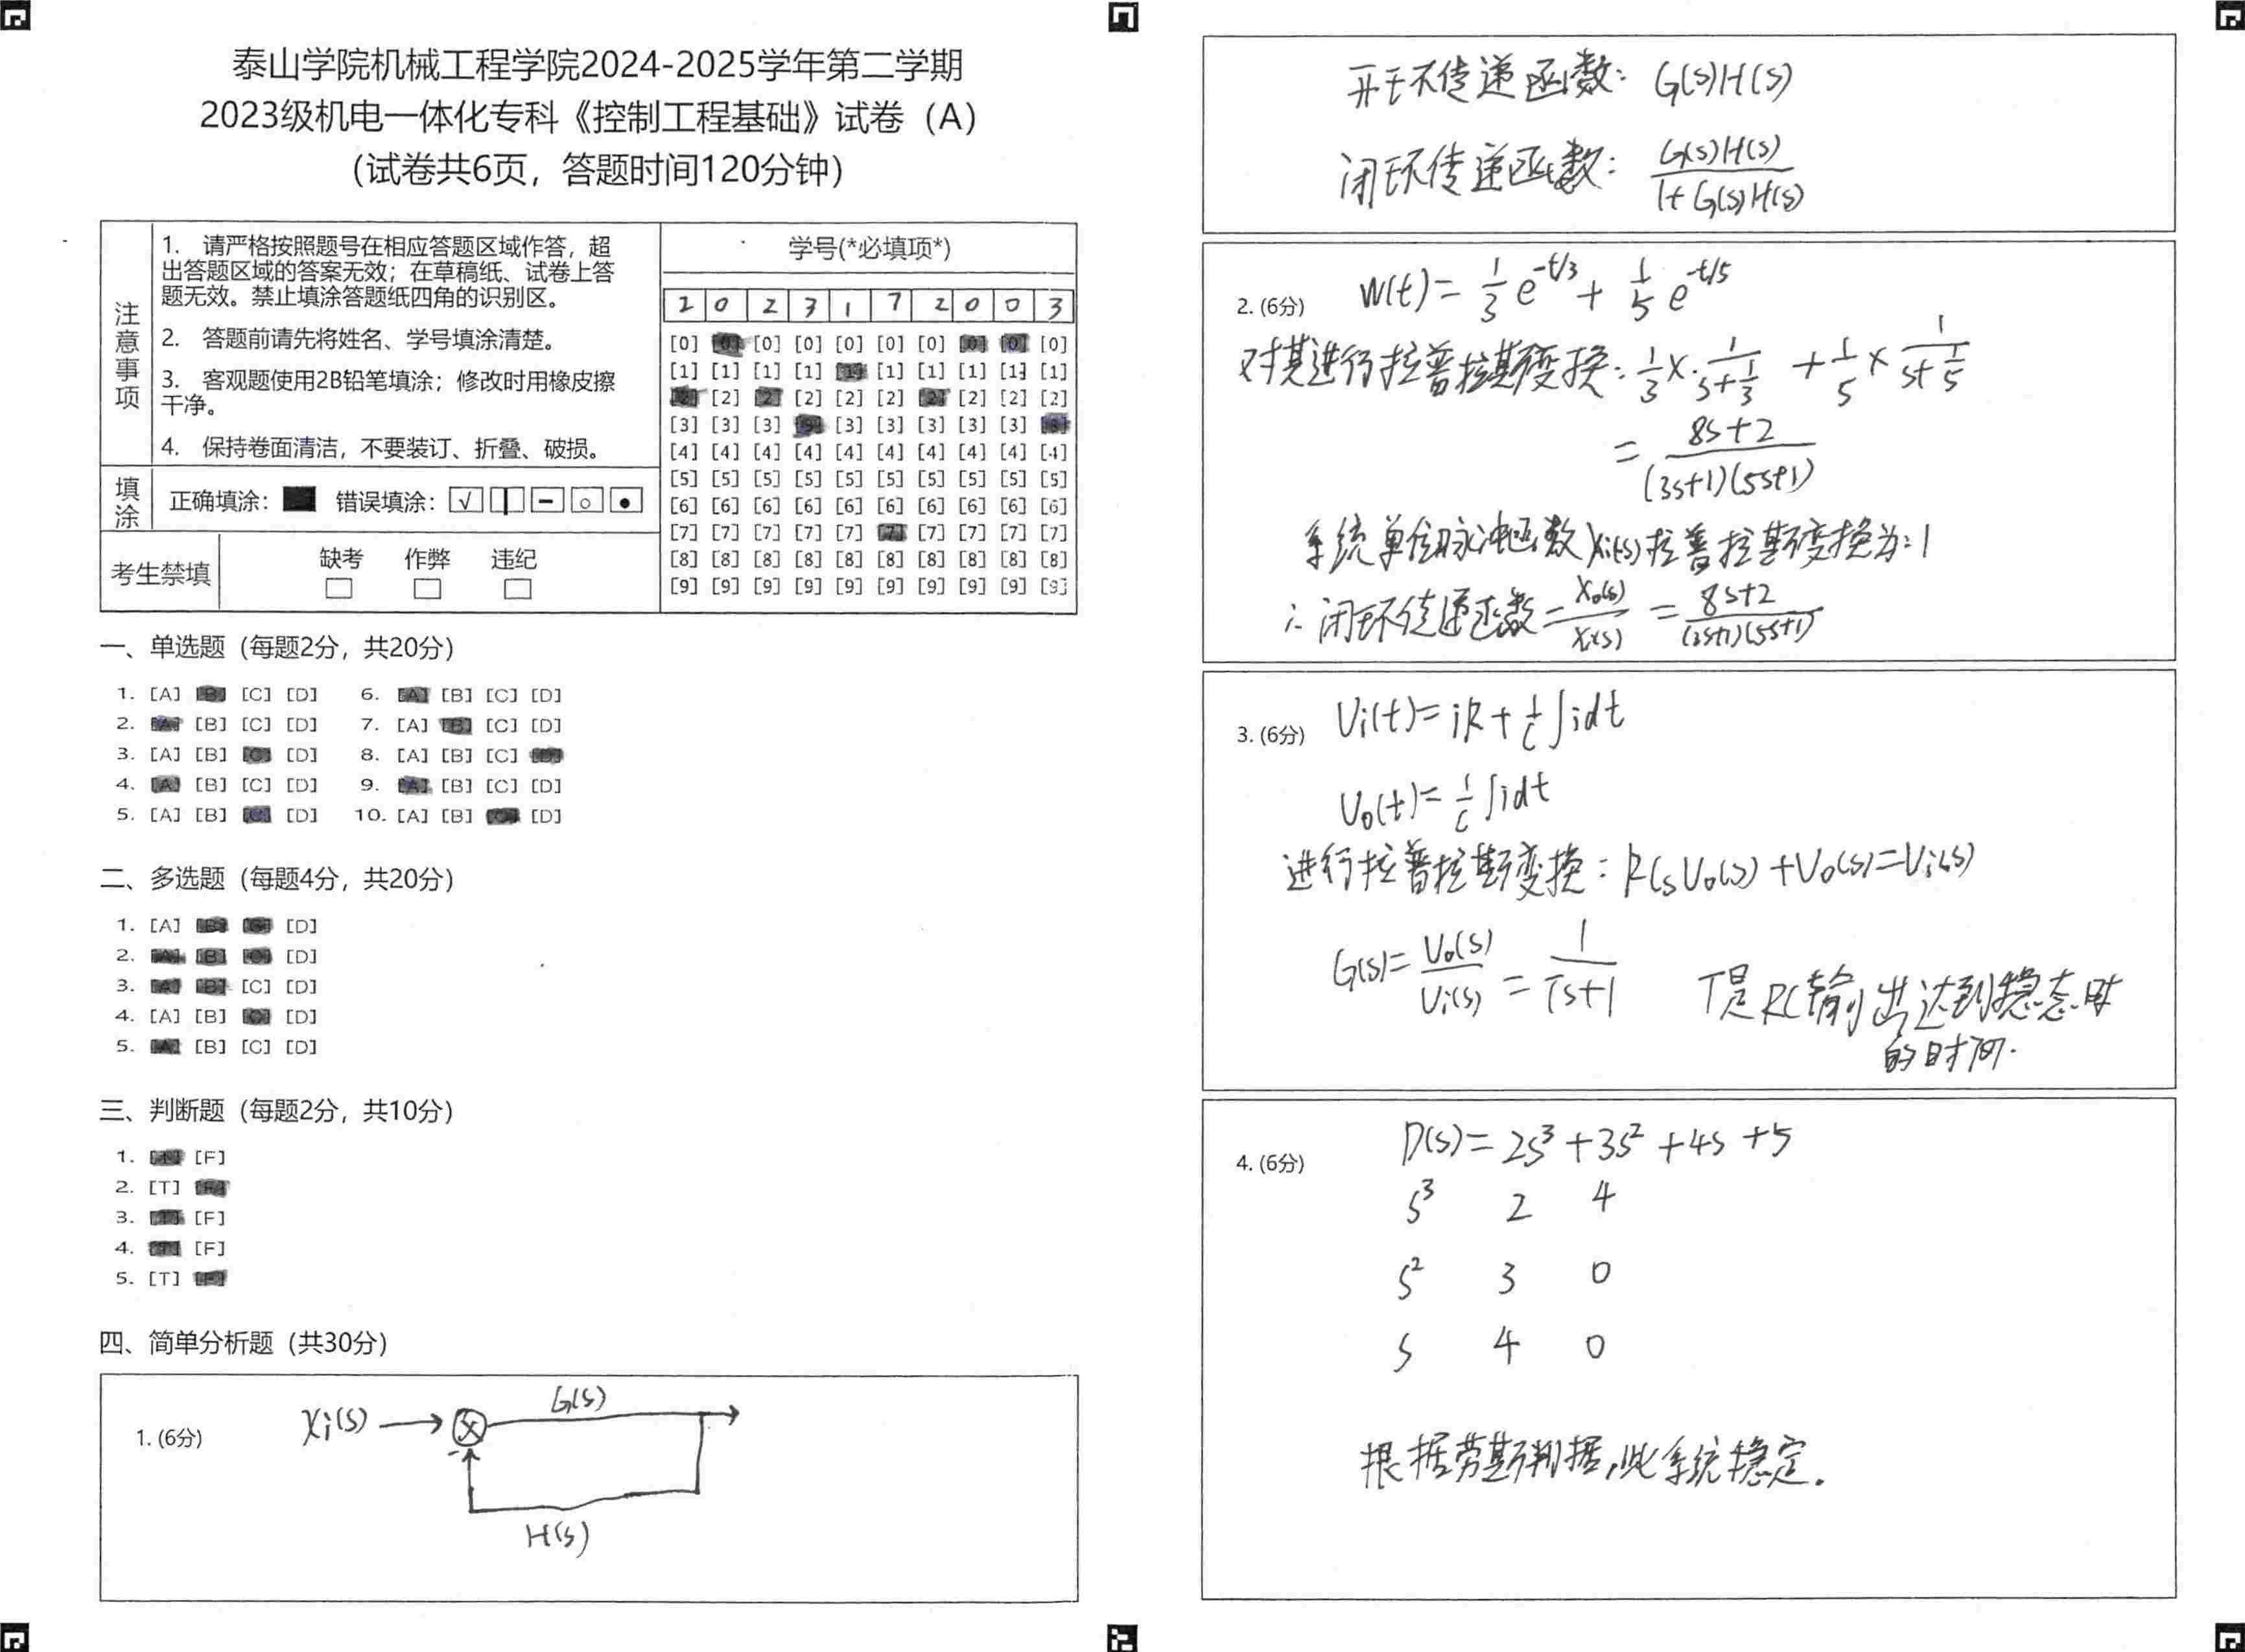 泰山学院机械工程学院2024-2025学年第二学期
2023级机电一体化专科《控制工程基础》试卷（A）
（试卷共6页，答题时间120分钟）
注意事项
1. 请严格按照题号在相应答题区域作答，超
出答题区域的答案无效；在草稿纸、试卷上答
题无效。禁止填涂答题纸四角的识别区。
2. 答题前请先将姓名、学号填涂清楚。
3. 客观题使用2B铅笔填涂；修改时用橡皮擦
干净。
4. 保持卷面清洁，不要装订、折叠、破损。
填涂
正确填涂： 错误填涂：
考生禁填
缺考 作弊 违纪
学号(*必填项*)
2 0 2 3 1 7 2 0 0 3
[0] [0] [0] [0] [0] [0] [0] [0] [0] [0]
[1] [1] [1] [1] [1] [1] [1] [1] [1] [1]
[2] [2] [2] [2] [2] [2] [2] [2] [2] [2]
[3] [3] [3] [3] [3] [3] [3] [3] [3] [3]
[4] [4] [4] [4] [4] [4] [4] [4] [4] [4]
[5] [5] [5] [5] [5] [5] [5] [5] [5] [5]
[6] [6] [6] [6] [6] [6] [6] [6] [6] [6]
[7] [7] [7] [7] [7] [7] [7] [7] [7] [7]
[8] [8] [8] [8] [8] [8] [8] [8] [8] [8]
[9] [9] [9] [9] [9] [9] [9] [9] [9] [9]
一、单选题（每题2分，共20分）
1. [A] [B] [C] [D] 6. [A] [B] [C] [D]
2. [A] [B] [C] [D] 7. [A] [B] [C] [D]
3. [A] [B] [C] [D] 8. [A] [B] [C] [D]
4. [A] [B] [C] [D] 9. [A] [B] [C] [D]
5. [A] [B] [C] [D] 10. [A] [B] [C] [D]
二、多选题（每题4分，共20分）
1. [A] [B] [C] [D]
2. [A] [B] [C] [D]
3. [A] [B] [C] [D]
4. [A] [B] [C] [D]
5. [A] [B] [C] [D]
三、判断题（每题2分，共10分）
1. [T] [F]
2. [T] [F]
3. [T] [F]
4. [T] [F]
5. [T] [F]
四、简单分析题（共30分）
1. (6分)
Xi(s) G(s)
-
H(s)
开环传递函数：G(s)H(s)
闭环传递函数：G(s)H(s) / 1+G(s)H(s)
2. (6分) W(t)= 1/3 e^-t/3 + 1/5 e^-t/5
对其进行拉普拉斯变换：1/3 × 1/(s+1/3) + 1/5 × 1/(s+1/5)
= 8s+2 / (3s+1)(5s+1)
系统单位脉冲函数Xi(s)拉普拉斯变换为：1
∴闭环传递函数= Xo(s)/Xi(s) = 8s+2 / (3s+1)(5s+1)
3. (6分) Ui(t)= iR + 1/C ∫idt
Uo(t)= 1/C ∫idt
进行拉普拉斯变换：RCsUo(s)+Uo(s)=Ui(s)
G(s)= Uo(s)/Ui(s) = 1/(Ts+1) T是RC输出达到稳态时
的时间.
4. (6分) D(s)= 2s³+3s²+4s+5
s³ 2 4
s² 3 0
s 4 0
根据劳斯判据，此系统稳定.